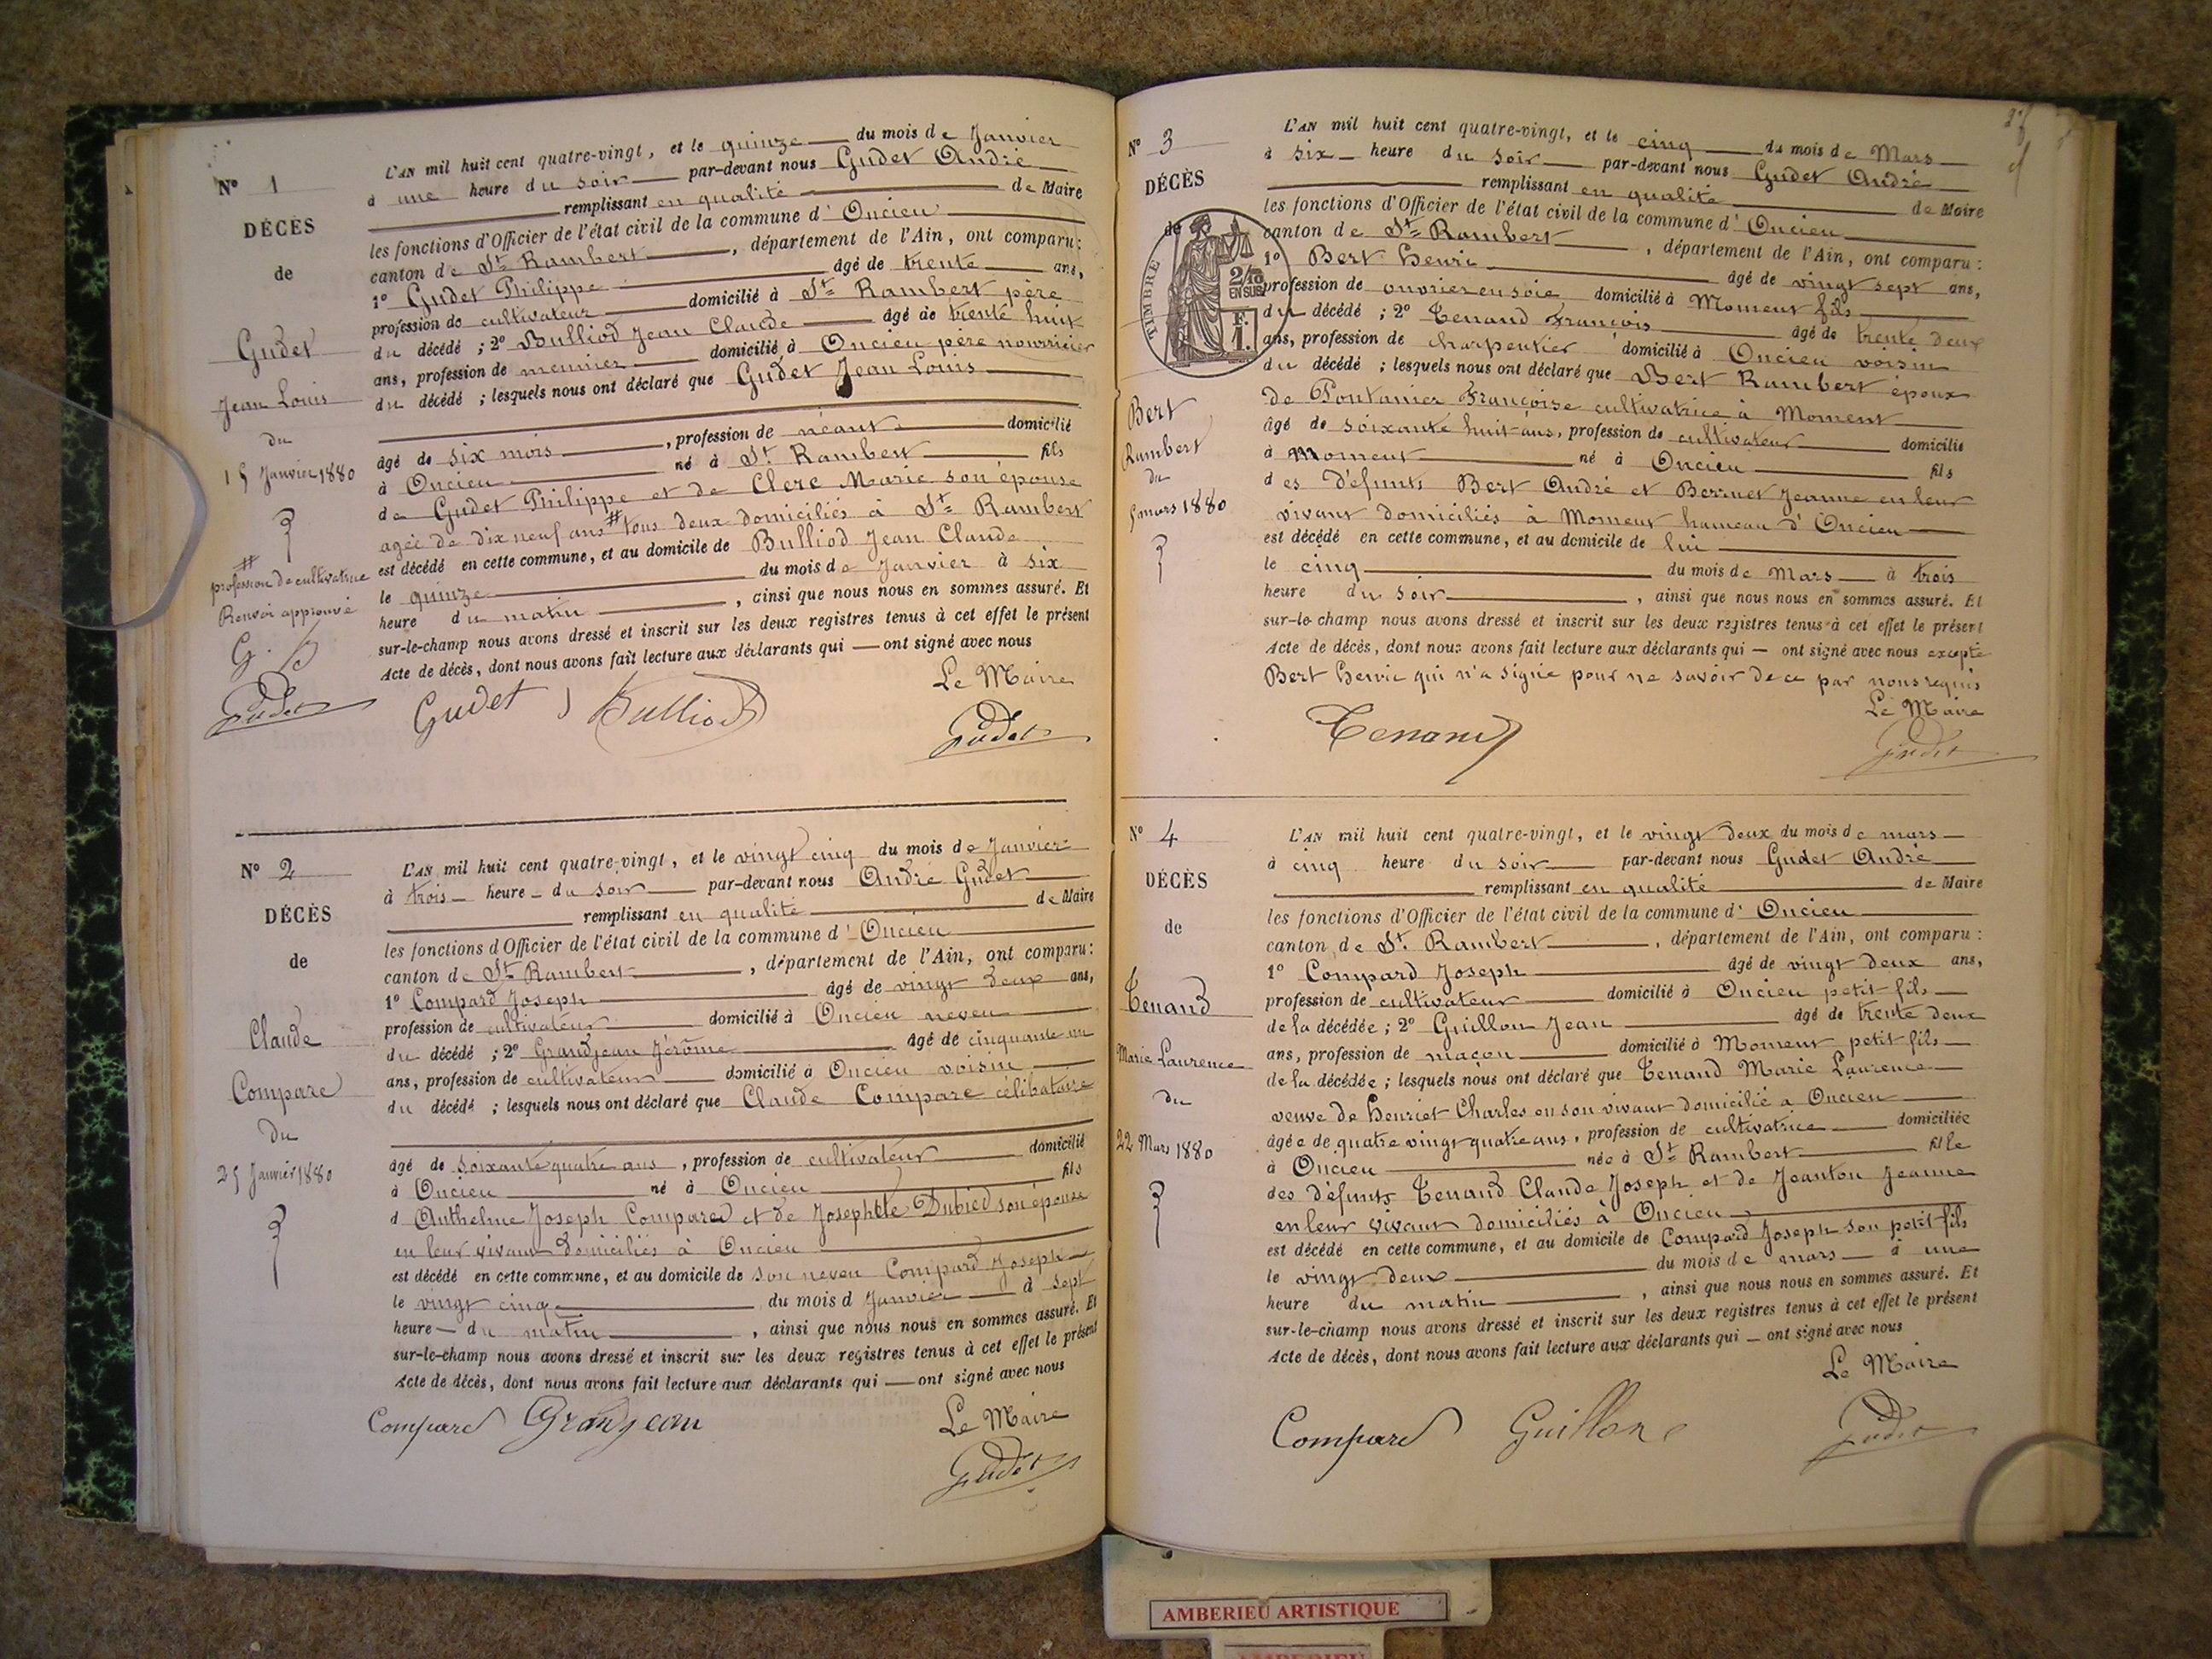 Nº 1
DÉCÈS
de
Gudet
Jean Louis
du
15 Janvier 1880
#
profession de cultivatrice
Renvoi approuvé
G. B
Gudet
L'AN mil huit cent quatre-vingt, et le quinze du mois de Janvier
à une heure du soir par-devant nous Gudet André
remplissant en qualité de Maire
les fonctions d'Officier de l'état civil de la commune d' Oncieu
canton de St Rambert, département de l'Ain, ont comparu:
1º Gudet Philippe âgé de trente ans,
profession de cultivateur domicilié à St Rambert père
du décédé ; 2º Bulliod Jean Claude âgé de trente huit
ans, profession de meunier domicilié à Oncieu père nourricier
du décédé ; lesquels nous ont déclaré que Gudet Jean Louis
âgé de six mois, profession de néant domicilié
à Oncieu né à St Rambert fils
de Gudet Philippe et de Clerc Marie son épouse
agée de dix neuf ans # tous deux domiciliés à St Rambert
est décédé en cette commune, et au domicile de Bulliod Jean Claude
le quinze du mois de Janvier à six
heure du matin, ainsi que nous nous en sommes assuré. Et
sur-le-champ nous avons dressé et inscrit sur les deux registres tenus à cet effet le présent
Acte de décès, dont nous avons fait lecture aux déclarants qui — ont signé avec nous
Le Maire
Gudet J Bulliod Gudet
Nº 2
DÉCÈS
de
Claude
Compare
du
25 Janvier 1880
L'AN mil huit cent quatre-vingt, et le vingt cinq du mois de Janvier
à trois heure du soir par-devant nous André Gudet
remplissant en qualité de Maire
les fonctions d'Officier de l'état civil de la commune d' Oncieu
canton de St Rambert, département de l'Ain, ont comparu:
1º Compard Joseph âgé de vingt deux ans,
profession de cultivateur domicilié à Oncieu neveu
du décédé ; 2º Grandjean Jérôme âgé de cinquante un
ans, profession de cultivateur domicilié à Oncieu voisin
du décédé ; lesquels nous ont déclaré que Claude Compare célibataire
âgé de soixante quatre ans, profession de cultivateur domicilié
à Oncieu né à Oncieu fils
d Anthelme Joseph Compared et de Josephte Dubied son épouse
en leur vivant domiciliés à Oncieu
est décédé en cette commune, et au domicile de son neveu Compard Joseph
le vingt cinq du mois d Janvier à sept
heure du matin, ainsi que nous nous en sommes assuré. Et
sur-le-champ nous avons dressé et inscrit sur les deux registres tenus à cet effet le présent
Acte de décès, dont nous avons fait lecture aux déclarants qui — ont signé avec nous
Compard Grandjean Le Maire
Gudet
Nº 3
DÉCÈS
de
TIMBRE
2/10
EN SUS
F.
1.
Bert
Rambert
du
5 mars 1880
L'AN mil huit cent quatre-vingt, et le cinq du mois de Mars
à six heure du soir par-devant nous Gudet André
remplissant en qualité de Maire
les fonctions d'Officier de l'état civil de la commune d' Oncieu
canton de St Rambert, département de l'Ain, ont comparu:
1º Bert Henri âgé de vingt sept ans,
profession de ouvrier en soie domicilié à Moment fils
du décédé ; 2º Tenand François âgé de trente deux
ans, profession de charpentier domicilié à Oncieu voisin
du décédé ; lesquels nous ont déclaré que Bert Rambert époux
de Pontanier Françoise cultivatrice à Moment
âgé de soixante huit ans, profession de cultivateur domicilié
à Moment né à Oncieu fils
des défunts Bert André et Berruet Jeanne en leur
vivant domiciliés à Moment hameau d' Oncieu
est décédé en cette commune, et au domicile de lui
le cinq du mois de Mars à trois
heure du soir, ainsi que nous nous en sommes assuré. Et
sur-le-champ nous avons dressé et inscrit sur les deux registres tenus à cet effet le présent
Acte de décès, dont nous avons fait lecture aux déclarants qui — ont signé avec nous excepté
Bert Henri qui n'a signé pour ne savoir de ce par nous requis
Le Maire
Tenand Gudet
Nº 4
DÉCÈS
de
Tenand
Marie Laurence
du
22 Mars 1880
L'AN mil huit cent quatre-vingt, et le vingt deux du mois de mars
à cinq heure du soir par-devant nous Gudet André
remplissant en qualité de Maire
les fonctions d'Officier de l'état civil de la commune d' Oncieu
canton de St. Rambert, département de l'Ain, ont comparu:
1º Compard Joseph âgé de vingt deux ans,
profession de cultivateur domicilié à Oncieu petit-fils
de la décédée ; 2º Guillon Jean âgé de trente deux
ans, profession de maçon domicilié à Moment petit-fils
de la décédée ; lesquels nous ont déclaré que Tenand Marie Laurence
veuve de Henriet Charles en son vivant domicilié à Oncieu
âgée de quatre vingt quatre ans, profession de cultivatrice domiciliée
à Oncieu née à St Rambert fille
des défunts Tenand Claude Joseph et de Jeanton Jeanne
en leur vivant domiciliés à Oncieu
est décédé en cette commune, et au domicile de Compard Joseph son petit-fils
le vingt deux du mois de mars à une
heure du matin, ainsi que nous nous en sommes assuré. Et
sur-le-champ nous avons dressé et inscrit sur les deux registres tenus à cet effet le présent
Acte de décès, dont nous avons fait lecture aux déclarants qui — ont signé avec nous
Le Maire
Compard Guillon Gudet
AMBERIEU ARTISTIQUE
AMBERIEU